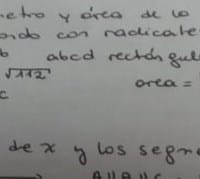 etro y área de lo
ando con radicales
b abcd rectángul
√112
area =
c
de x y los segm
A || A || C